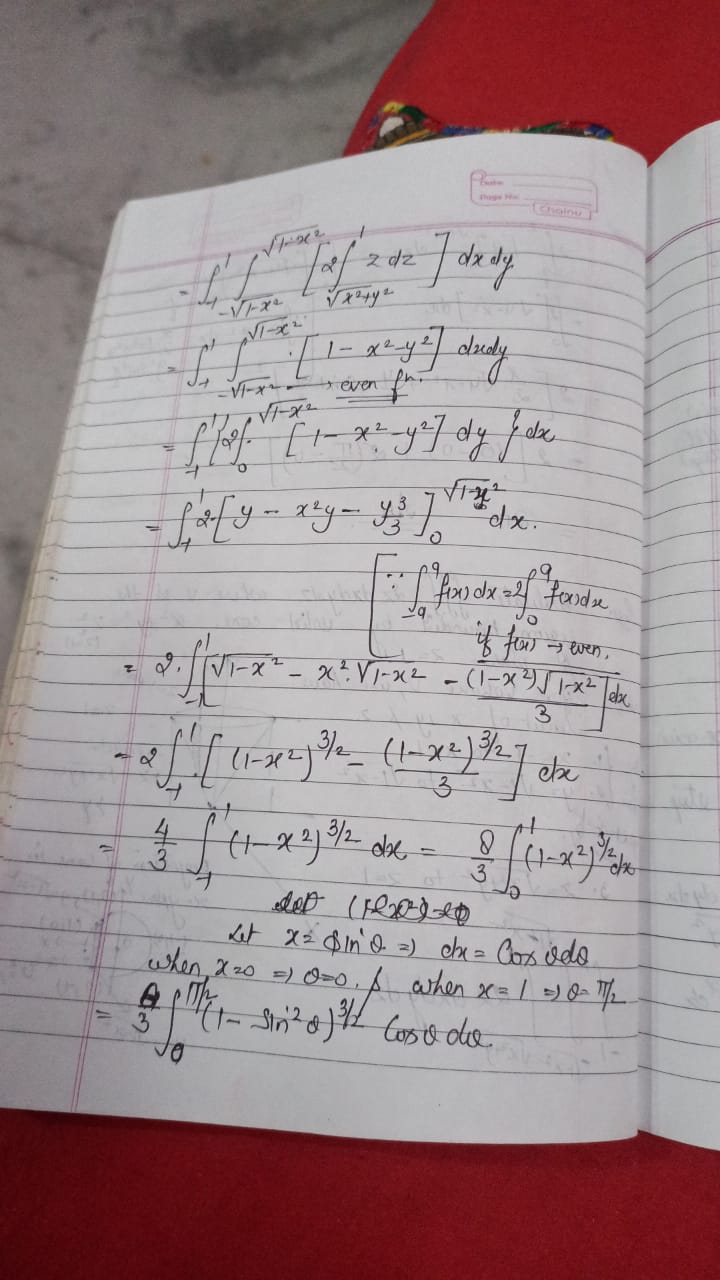 Date
Page No.
Chainu
= ∫₋₁¹ ∫_{-√1-x²}^{√1-x²} [2∫_{√x²+y²}^{1} z dz] dx dy
= ∫₋₁¹ ∫_{-√1-x²}^{√1-x²} . [1 - x² - y²] dxdy
→ even fn.
= ∫₋₁¹ {2∫₀^{√1-x²} [1 - x² - y²] dy} dx
= ∫₋₁¹ 2[y - x²y - y³/3]₀^{√1-x²} dx.
[∵ ∫₋ₐᵃ f(x) dx = 2∫₀ᵃ f(x)dx
if f(x) → even.
= 2.∫₋₁¹ [√1-x² - x².√1-x² - (1-x²)√1-x²/3] dx
= 2∫₋₁¹ .[(1-x²)^{3/2} - (1-x²)^{3/2}/3] dx
= 4/3 ∫₋₁¹ (1-x²)^{3/2} dx = 8/3 ∫₀¹ (1-x²)^{3/2} dx
Let x = sinθ ⇒ dx = Cosθdθ
when x=0 ⇒ θ=0. & when x=1 ⇒ θ=π/2
= 8/3 ∫₀^{π/2} (1 - sin²θ)^{3/2} Cosθ dθ.